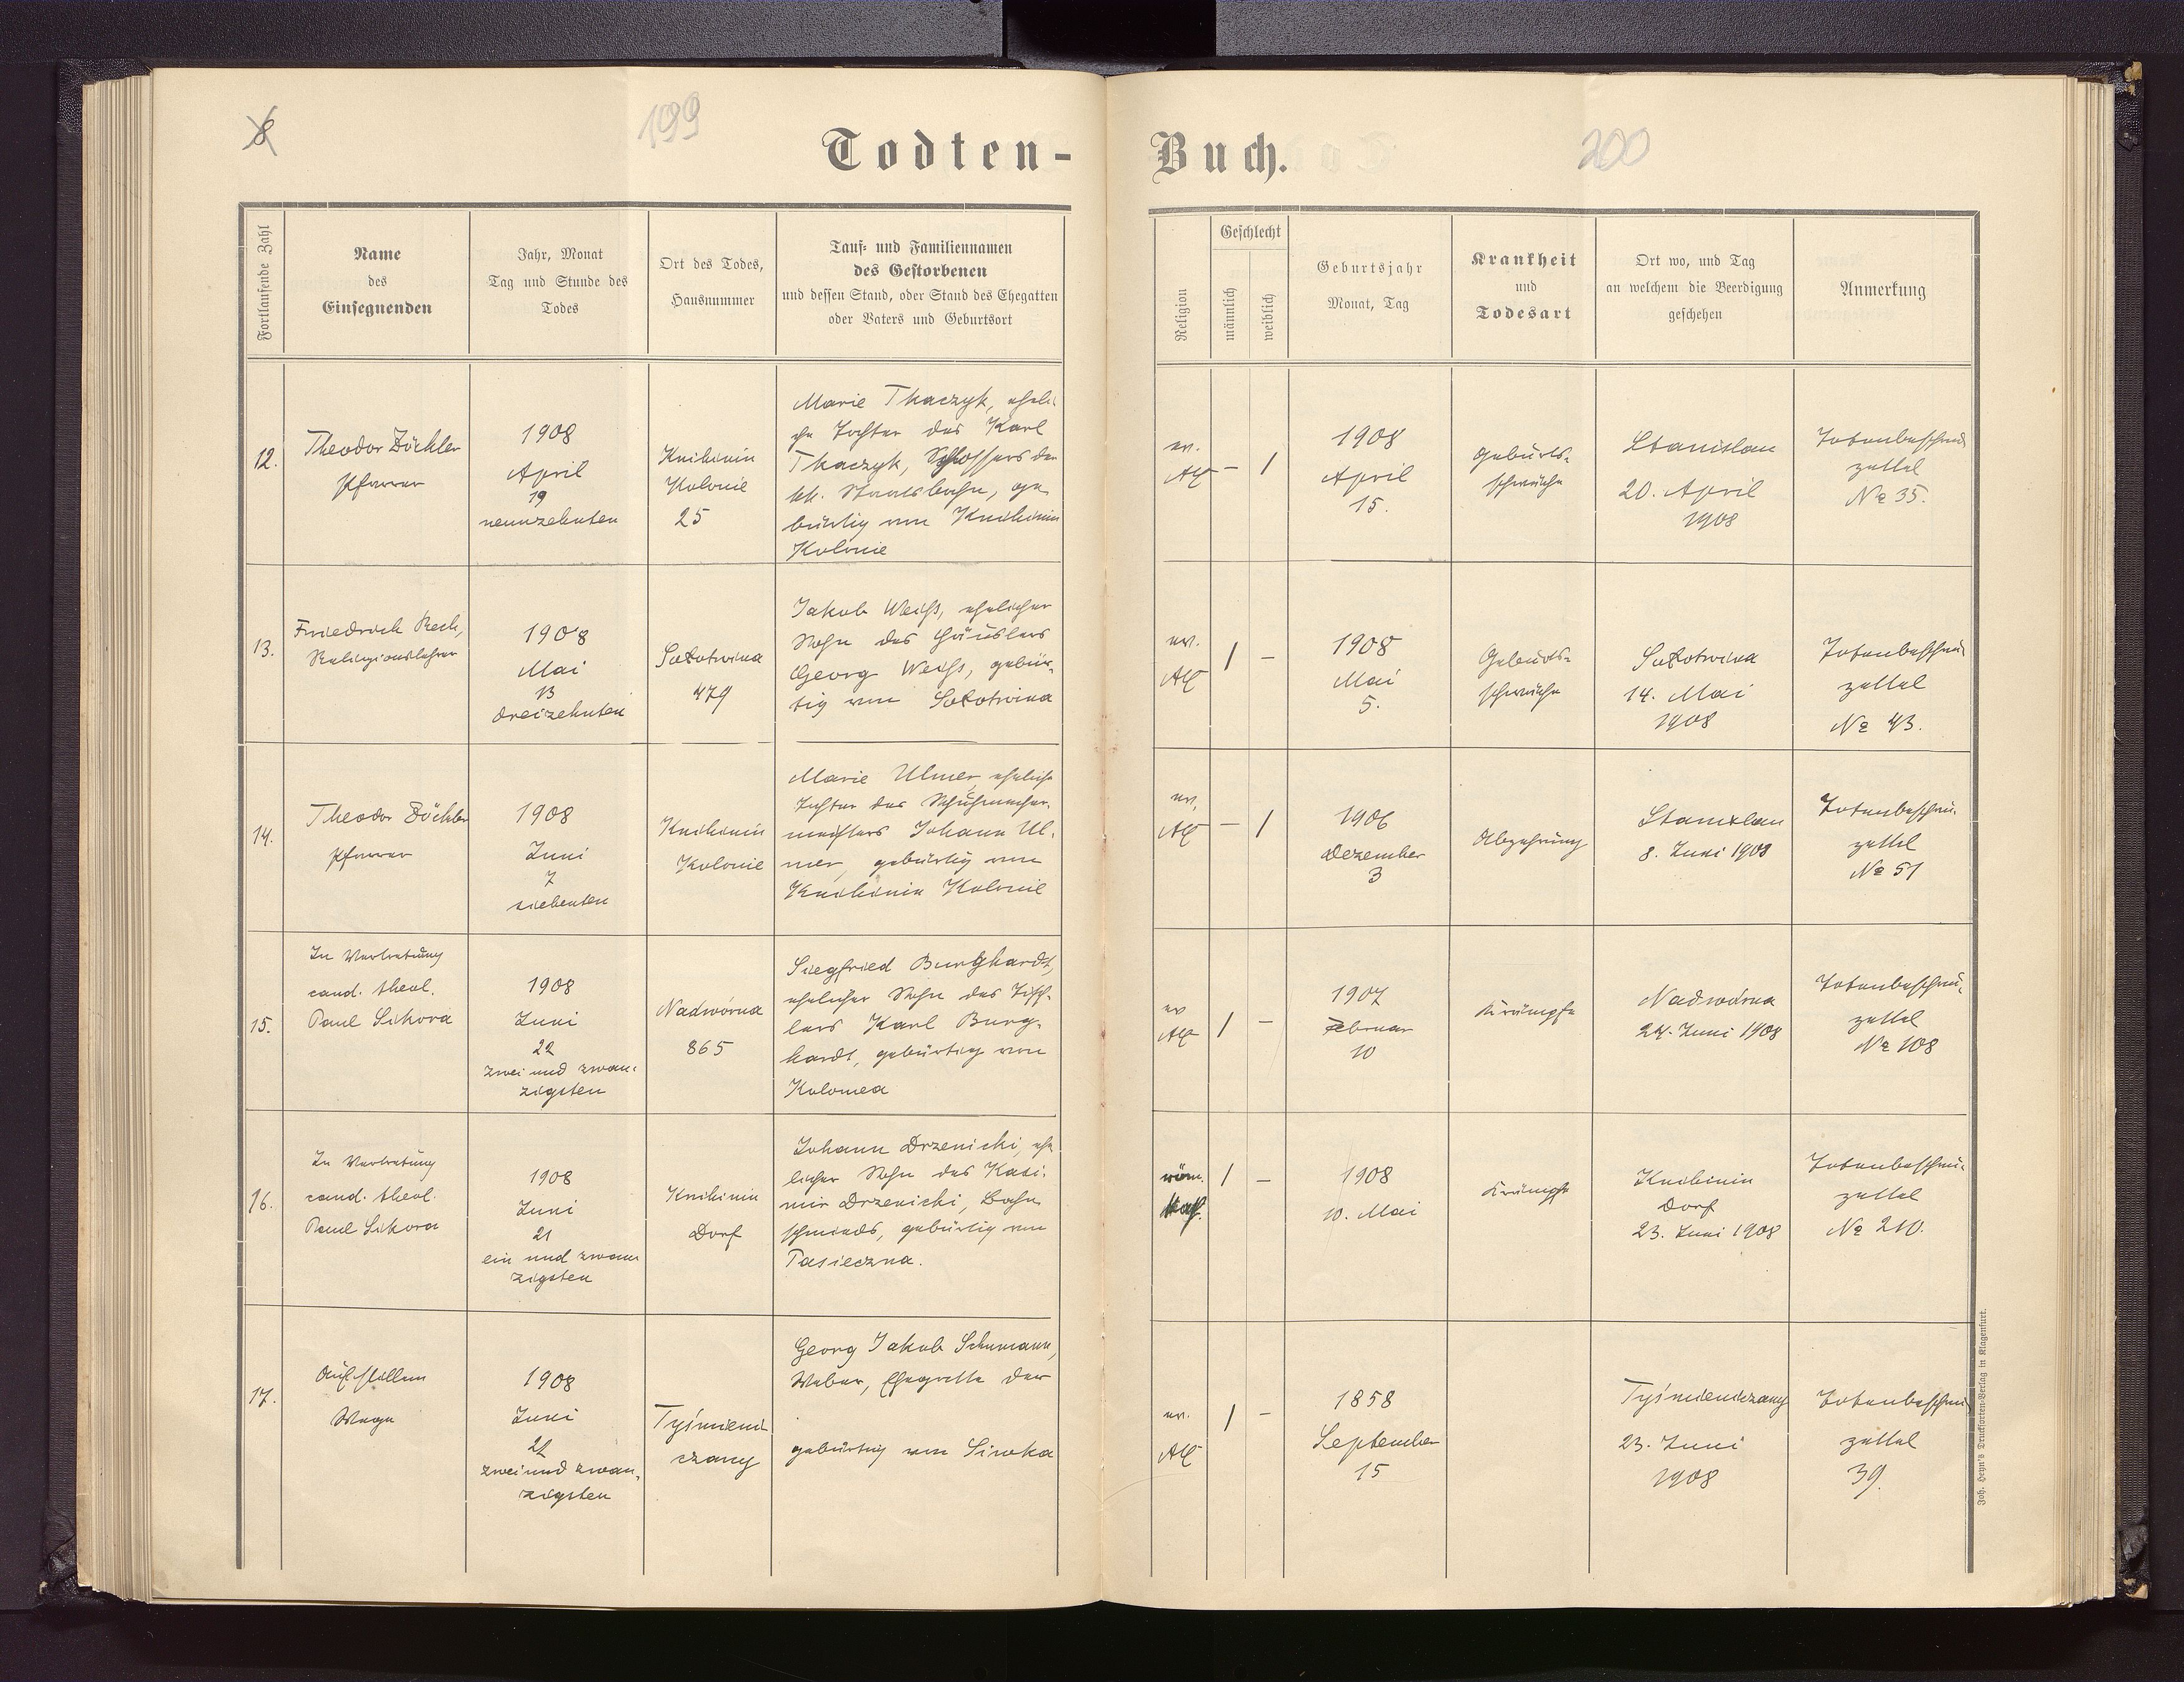 8
199
Todten-
Buch.
200
Fortlaufende Zahl
Name
des
Einsegnenden
Jahr, Monat
Tag und Stunde des
Todes
Ort des Todes,
Hausnummer
Tauf- und Familiennamen
des Gestorbenen
und dessen Stand, oder Stand des Ehegatten
oder Vaters und Geburtsort
Religion
Geschlecht
männlich
weiblich
Geburtsjahr
Monat, Tag
Krankheit
und
Todesart
Ort wo, und Tag
an welchem die Beerdigung
geschehen
Anmerkung
12.
Theodor Zöckler
Pfarrer
1908
April
19
neunzehnten
Knihinin
Kolonie
25
Marie Tkaczyk, eheli-
che Tochter des Karl
Tkaczyk, Schlossers der
kk. Staatsbahn, ge-
bürtig von Knihinin
Kolonie
ev.
AC
–
1
1908
April
15.
Geburts-
schwäche
Stanislau
20. April
1908
Totenbeschau
zettel
№ 35.
13.
Friedrich Rech,
Religionslehrer
1908
Mai
13
dreizehnten
Sołotwina
479
Jakob Weiß, ehelicher
Sohn des Häuslers
Georg Weiß, gebür-
tig von Sołotwina
ev.
AC
1
–
1908
Mai
5.
Geburts-
schwäche
Sołotwina
14. Mai
1908
Totenbeschau
zettel
№ 43.
14.
Theodor Zöckler
Pfarrer
1908
Juni
7
siebenten
Knihinin
Kolonie
Marie Ulmer, eheliche
Tochter des Schuhmacher-
meisters Johann Ul-
mer, gebürtig von
Knihinin Kolonie
ev.
AC
–
1
1906
Dezember
3
Abzehrung
Stanislau
8. Juni 1908
Totenbeschau-
zettel
№ 51
15.
In Vertretung
cand. theol.
Paul Sikora
1908
Juni
22
zwei und zwan-
zigsten
Nadwórna
865
Siegfried Burghardt,
ehelicher Sohn des Tisch-
lers Karl Burg-
hardt, gebürtig von
Kolomea
ev
AC
1
–
1907
Februar
10
Krämpfe
Nadwórna
24. Juni 1908
Totenbeschau-
zettel
№ 108
16.
In Vertretung
cand. theol.
Paul Sikora
1908
Juni
21
ein und zwan-
zigsten
Knihinin
Dorf
Johann Drzenicki, ehe-
licher Sohn des Kasi-
mir Drzenicki, Bahn-
schmieds, gebürtig von
Pasieczna.
röm.
kath.
1
–
1908
10. Mai
Krämpfe
Knihinin
Dorf
23. Juni 1908
Totenbeschau-
zettel
№ 210.
17.
Auf stillem
Wege
1908
Juni
22
zwei und zwan-
zigsten
Tyśmieni
czany
Georg Jakob Schumann,
Weber, Ehegatte der
gebürtig von Siwka
ev.
AC
1
–
1858
September
15
Tyśmieniczany
23. Juni
1908
Totenbeschau
zettel
39.
Joh. Heyn's Drucksorten-Verlag in Klagenfurt.